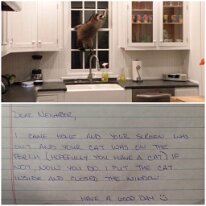 DEAR NEIGHBOR,
I CAME HOME AND YOUR SCREEN WAS
OUT AND YOUR CAT WAS ON THE
PERCH (HOPEFULLY YOU HAVE A CAT) IF
NOT, NOW YOU DO. I PUT THE CAT
INSIDE AND CLOSED THE WINDOW
HAVE A GOOD DAY